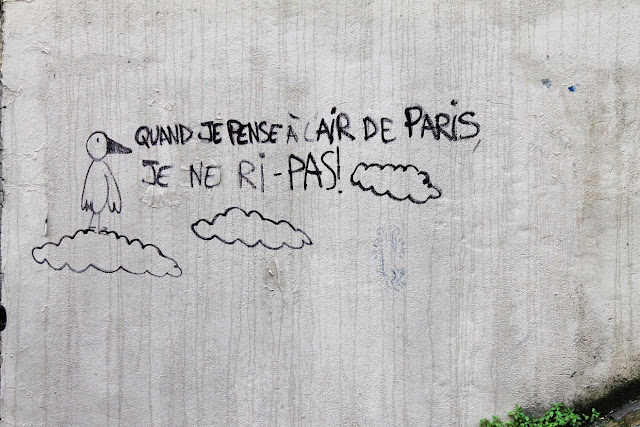 QUAND JE PENSE À L'AIR DE PARIS,
JE NE RI-PAS!